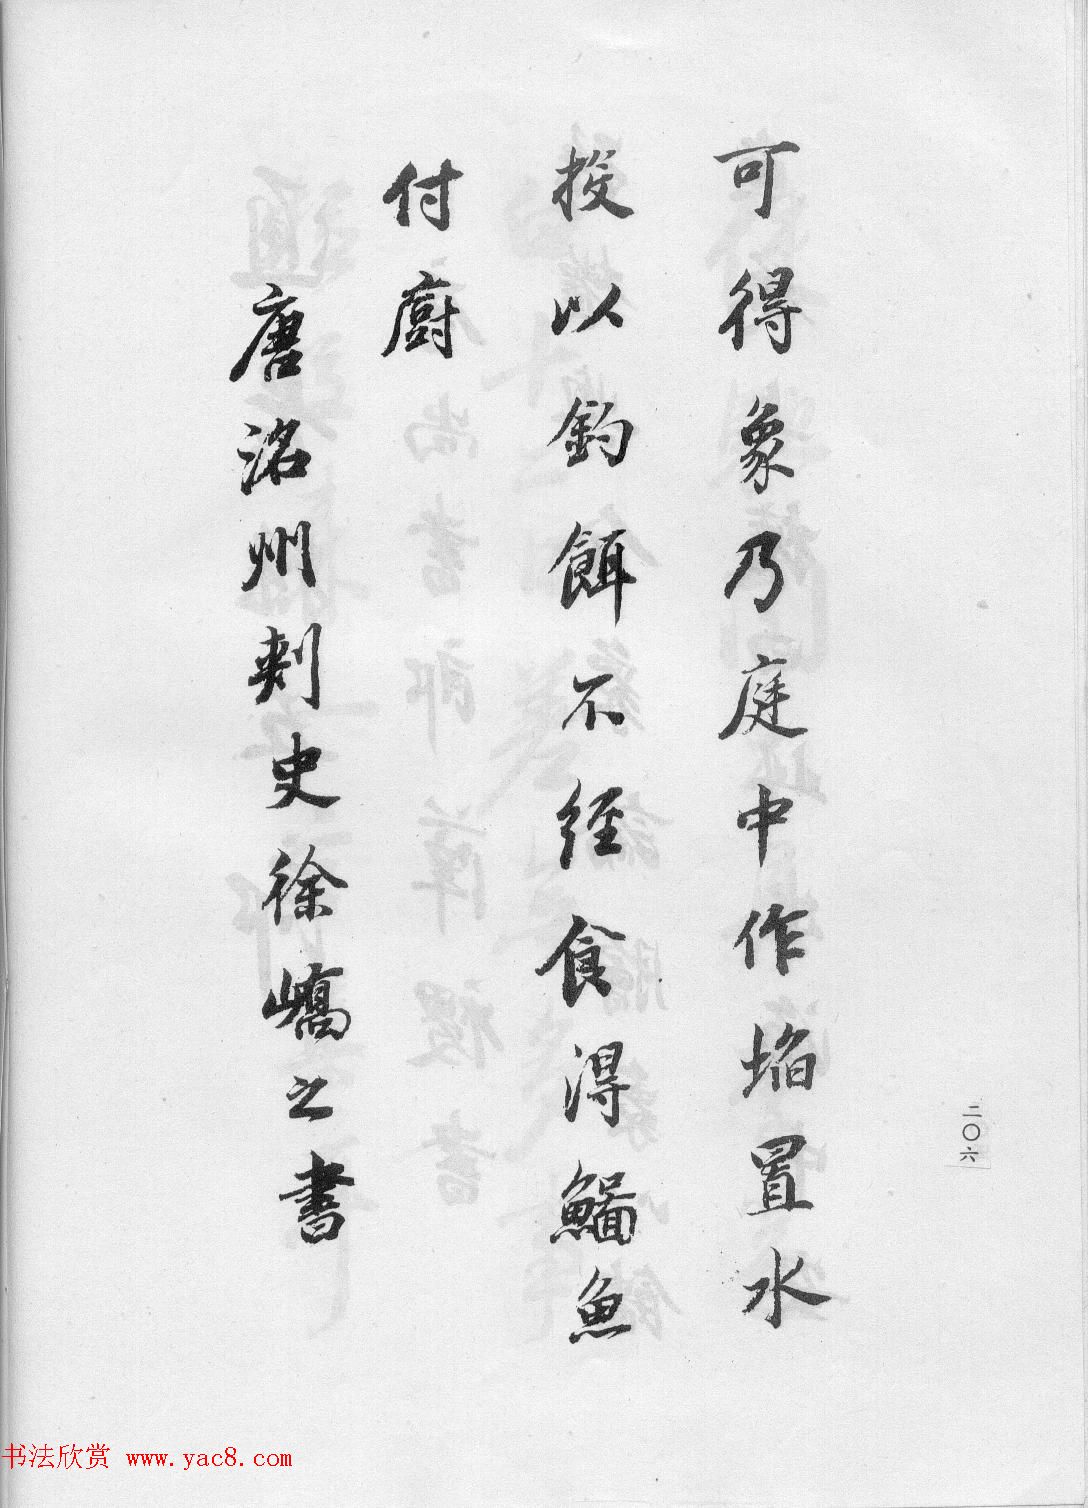 可得象乃庭中作埳置水
投以鈎餌不經食得鯔魚
付廚
唐洺州刺史徐嶠之書
二〇六
书法欣赏 www.yac8.com